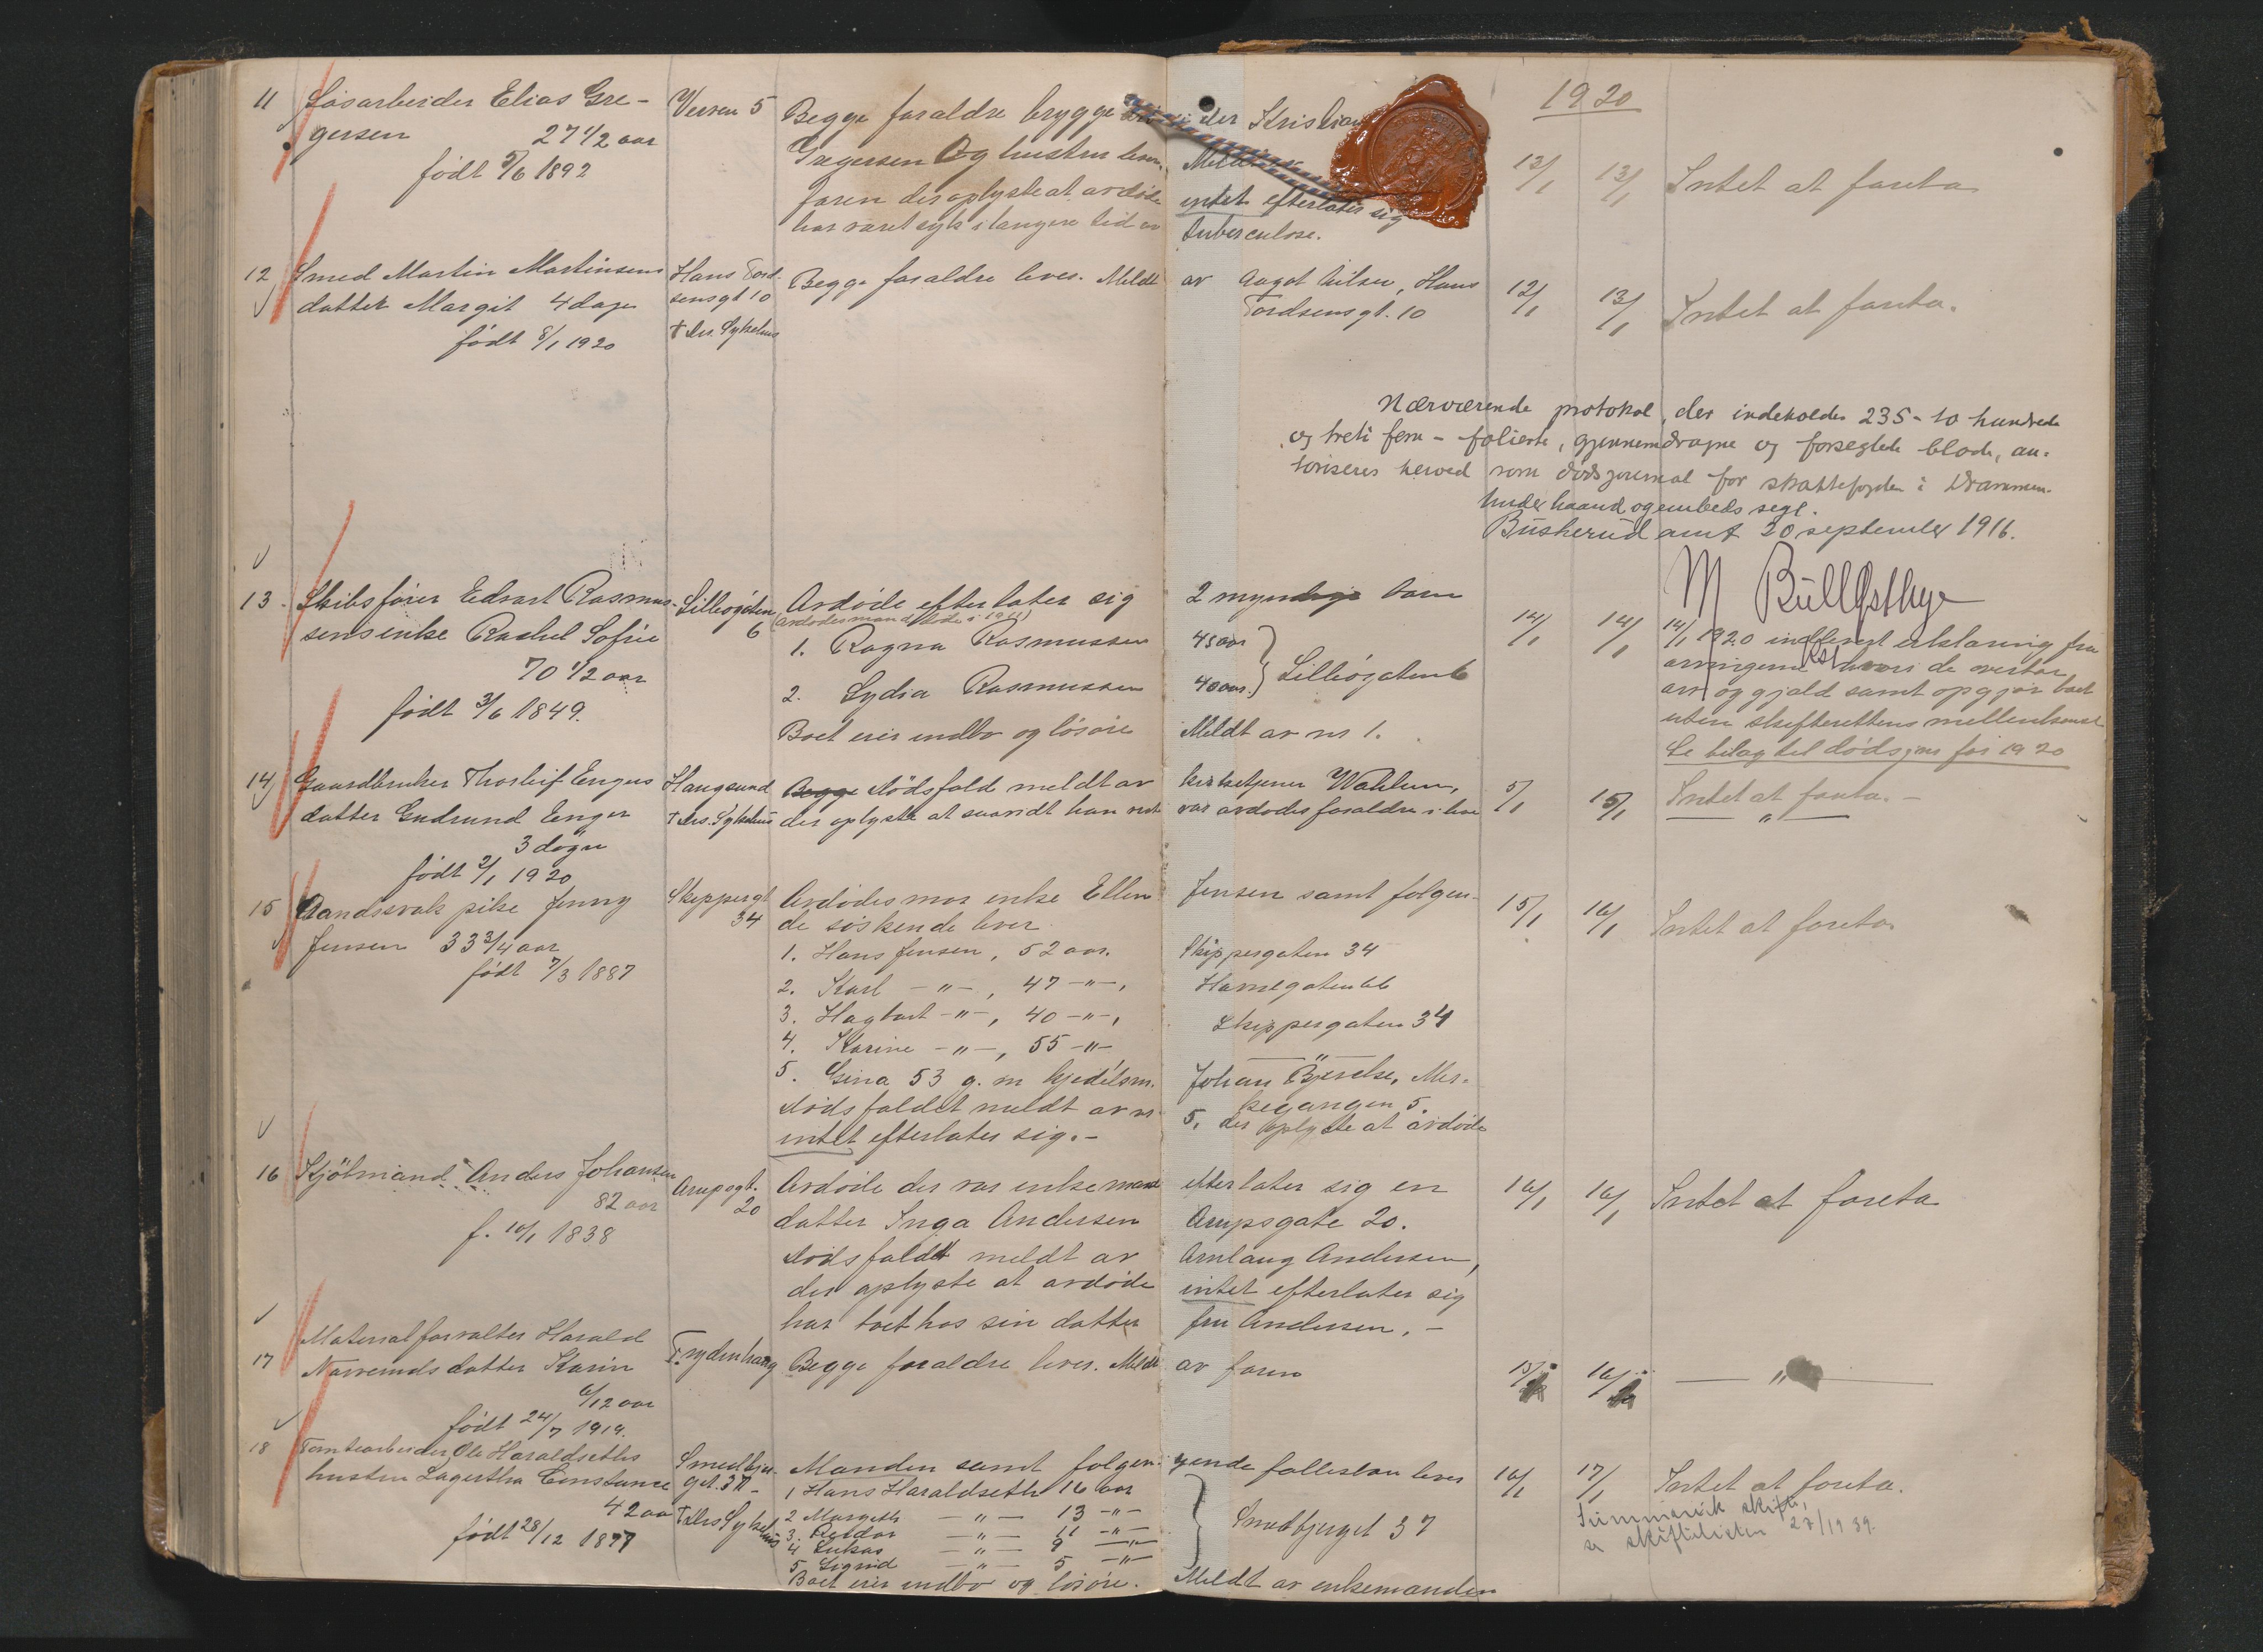 1920
11 Løsarbeider Elias Gre-
gersen 27 1/2 aar
født 5/6 1892
Verven 5
Begge foraldre brygge der Kristian
Gregersen Og hustru lever. Meldt av
faren der oplyste at avdøde intet efterlater sig
har varet syk i langere tid av tuberculose.
13/1 13/1 Intet at foreta
12 Smed Martin Martinsens
datter Margit 4 dage
født 8/1 1920
Hans Tord-
sensgt 10
† Drs. Sykehus
Begge foraldre lever. Meldt av Aagot Nilsen, Hans
Tordsensgt. 10
12/1 13/1 Intet at foreta.
Nærværende protokol, der indeholder 235 - to hundrede
og treti fem - folierte, gjennemdragne og forseglede blade, au-
toriseres herved som dødsjournal for skattefogden i Drammen.
Under haand og embeds segl.
Buskerud amt 20 september 1916.
M Bull
kst
13. Skibsfører Edvart Rasmus-
sens enke Rachel Sofie
70 1/2 aar
født 3/6 1849.
Lilleøgaten
6
Avdøde efterlater sig 2 myndige barn
1. Ragna Rasmussen 45 aar
2. Lydia Rasmussen 40 aar. } Lilleøgaten 6
Boet eier indbo og løsøre Meldt av nr 1.
14/1 14/1 14/1 1920 indlevert erklæring fra
arvingerne hvori de overtar
arv og gjæld samt opgjør boet
uten skifterettens mellemkomst
Se bilag til dødsjour for 1920
14 Gaardbruker Thorleif Engers
datter Gudrund Enger
3 døgn
født 2/1 1920
Haugsund
† Drs. Sykehus
Begge Dödsfald meldt av kirketjener Wahlum,
der oplyste at saavidt han viste var avdødes foraldre i live
5/1 15/1 Intet at foreta. -
— „ —
15 Aandssvak pike Jenny
Jensen 33 3/4 aar
født 7/3 1887
Skippergt
34
Avdødes mor enke Ellen Jensen samt følgen-
de søskende lever
1. Hans Jensen, 52 aar. Skippergaten 34
2. Karl -"-, 47 -"-, Havnegaten 66
3. Hagbart -"-, 40 -"-, Skippergaten 34
4. Karine -"-, 55 -"- — " —
5. Gina 53 g. m kjedelsm. Johan Bjerche, Mer-
kegangen 5
Dødsfaldet meldt av nr 5, der oplyste at avdøde
intet efterlater sig. -
15/1 16/1 Intet at foreta
16 Kjötmand Anders Johansen
82 aar
f. 16/1 1838
Arupsgt.
20
Avdøde der var enkemand efterlater sig en
datter Inga Andersen Arupsgate 20.
Dødsfaldt meldt av Arnlaug Andersen,
der oplyste at avdøde intet efterlater sig
har boet hos sin datter fru Andersen. -
16/1 16/1 Intet at foreta
17 Materialforvalter Harald
Narveruds datter Karin
6/12 aar
født 24/7 1919.
Frydenhaug
Begge foraldre lever. Meldt av faren
15/1 16/1 — „ —
18 Tomtearbeider Ole Haraldseths
hustru Lagertha Constance
42 aar
født 28/12 1877
Smedbjer-
get 37 -
† Drs Sykehus
Manden samt følgen- gende fallesbarn lever
1 Hans Haraldseth 16 aar
2 Margeth - " - 13 - " -
3. Reidar - " - 11 - " -
4 Lukas - " - 9 - " -
5 Sigrid - " - 5 - " -
Smedbjerget 37
Boet eier indbo og løsøre. Meldt av enkemanden
16/1 17/1 Intet at foreta.
Summarisk skifte,
se skiftelisten 27/19 39.